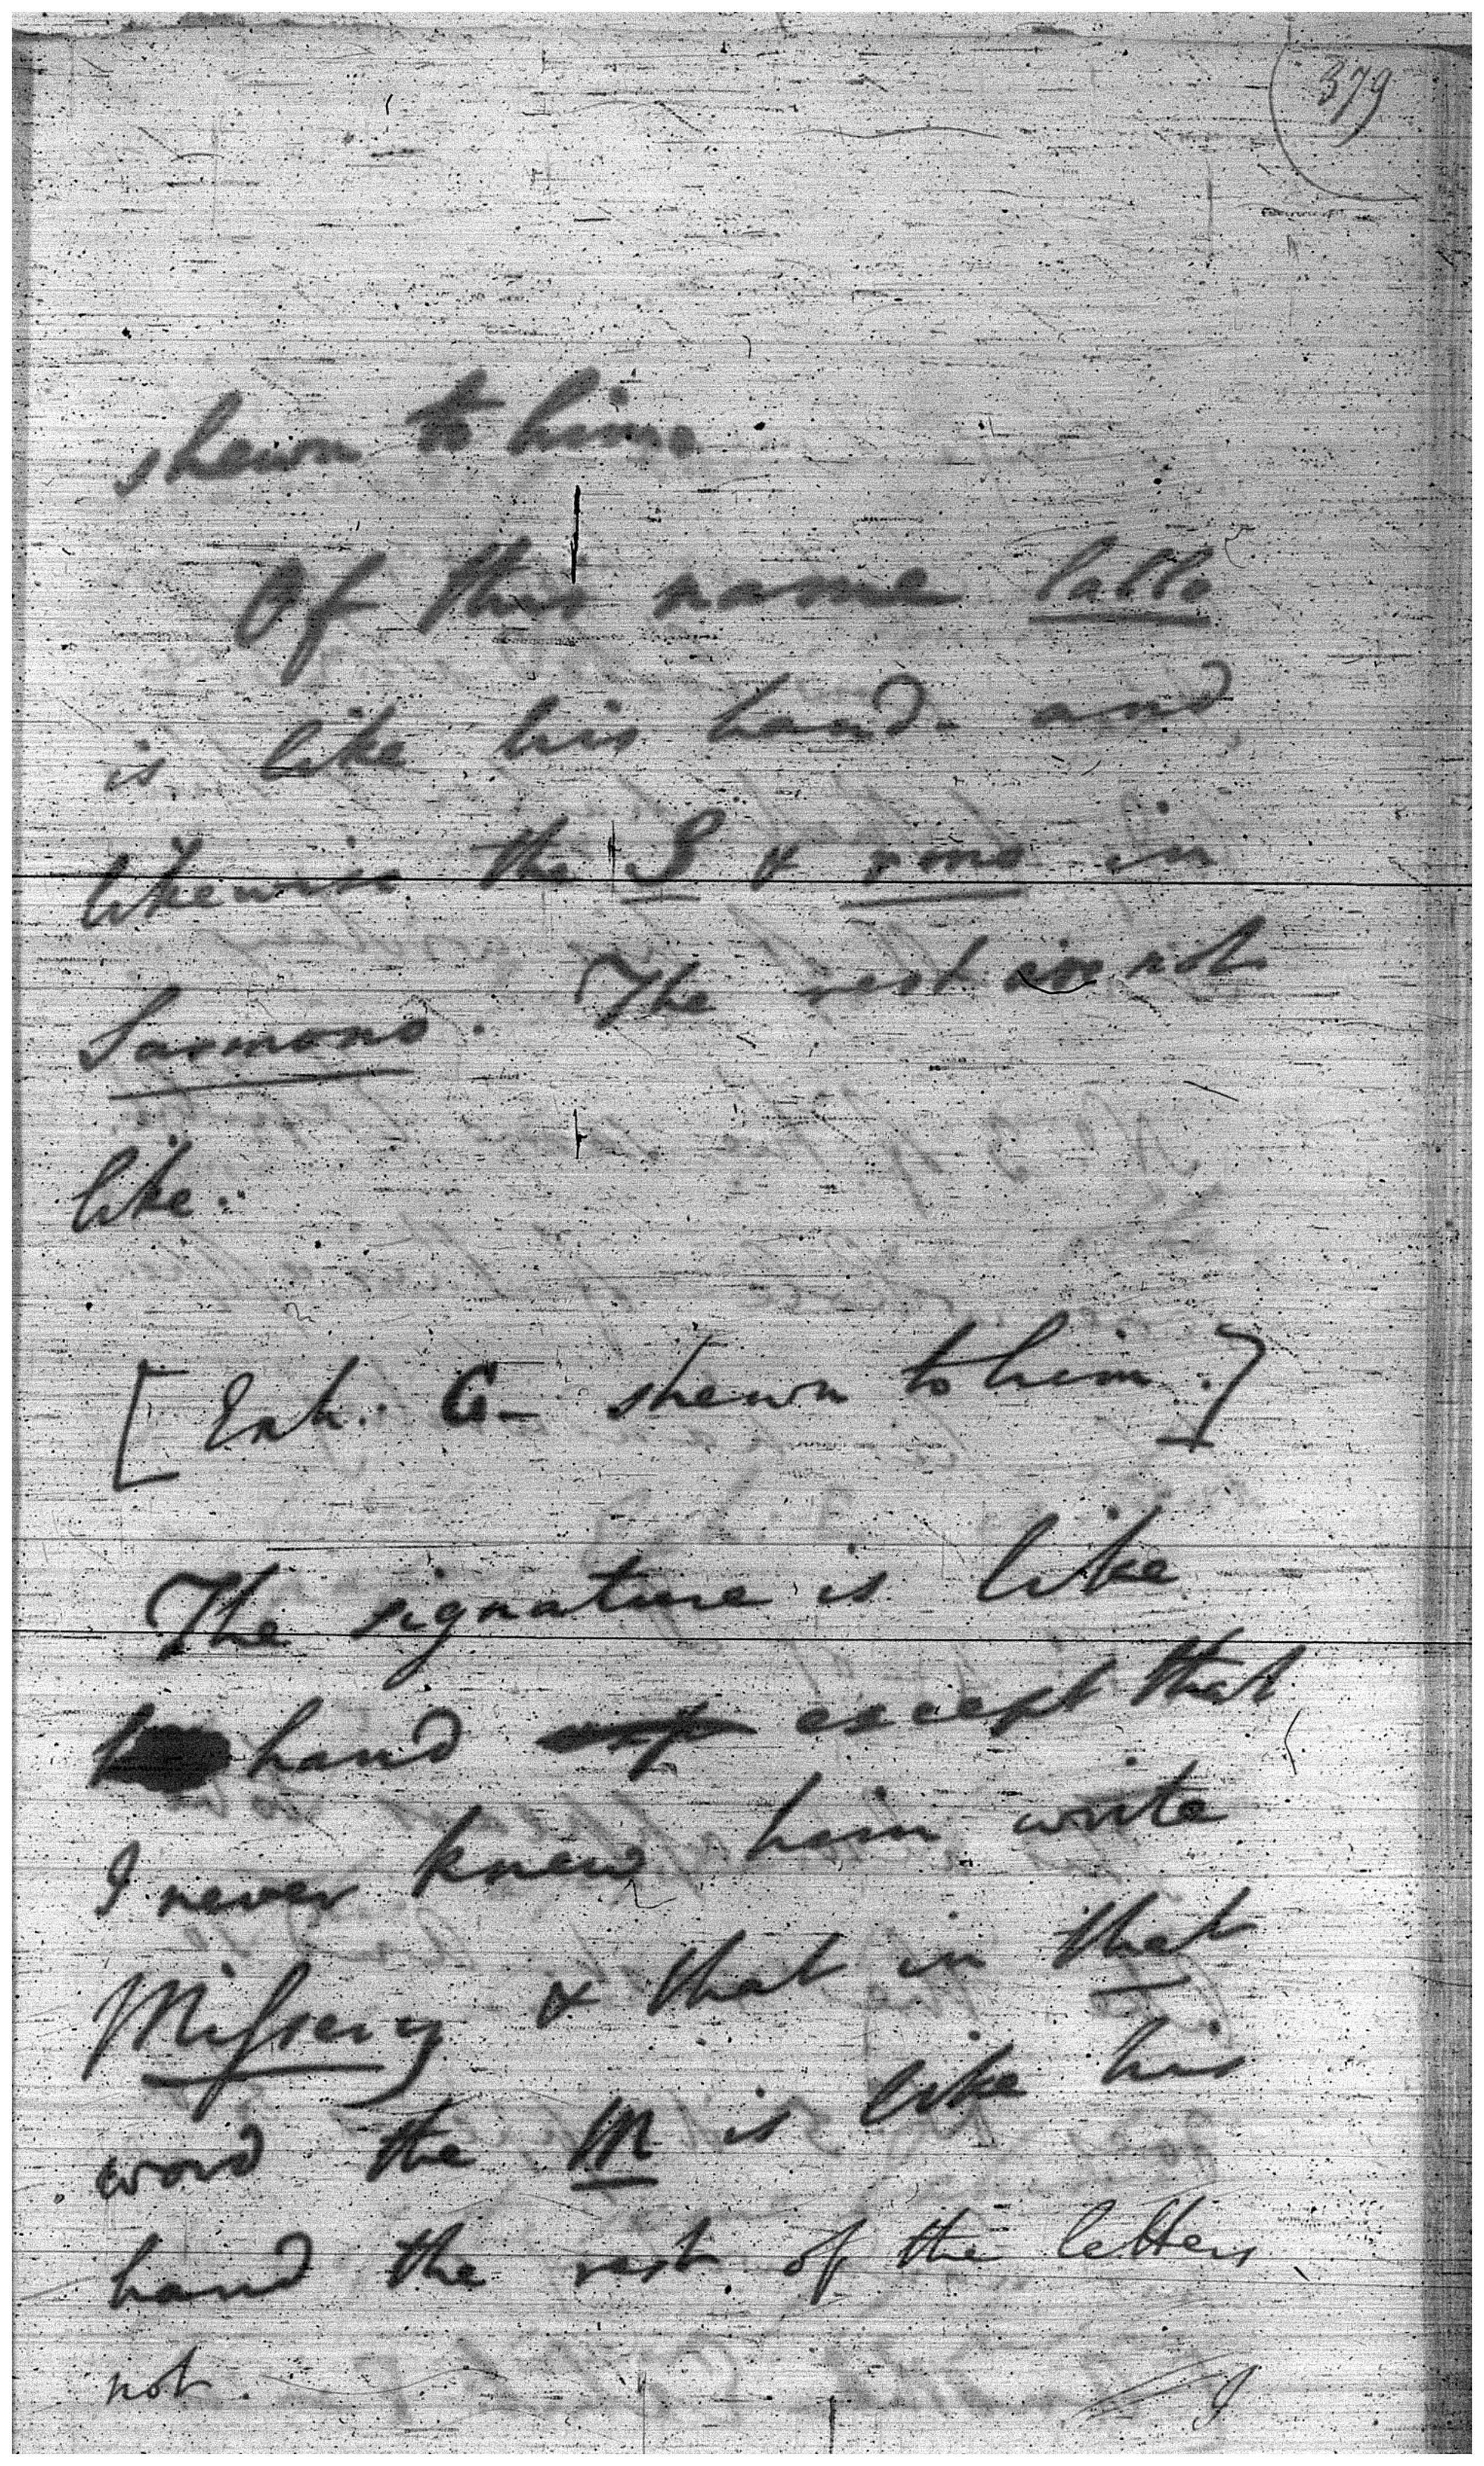 379
shewn to him.
Of this name lallo
is like his hand. and
likewise the S & rmo in
Sarmono. The rest is not
like.
[Exh. G- shewn to him.]
The signature is like
hand except that
I never knew him write
& that in that
word the M is like his
hand the rest of the letters
not.
I